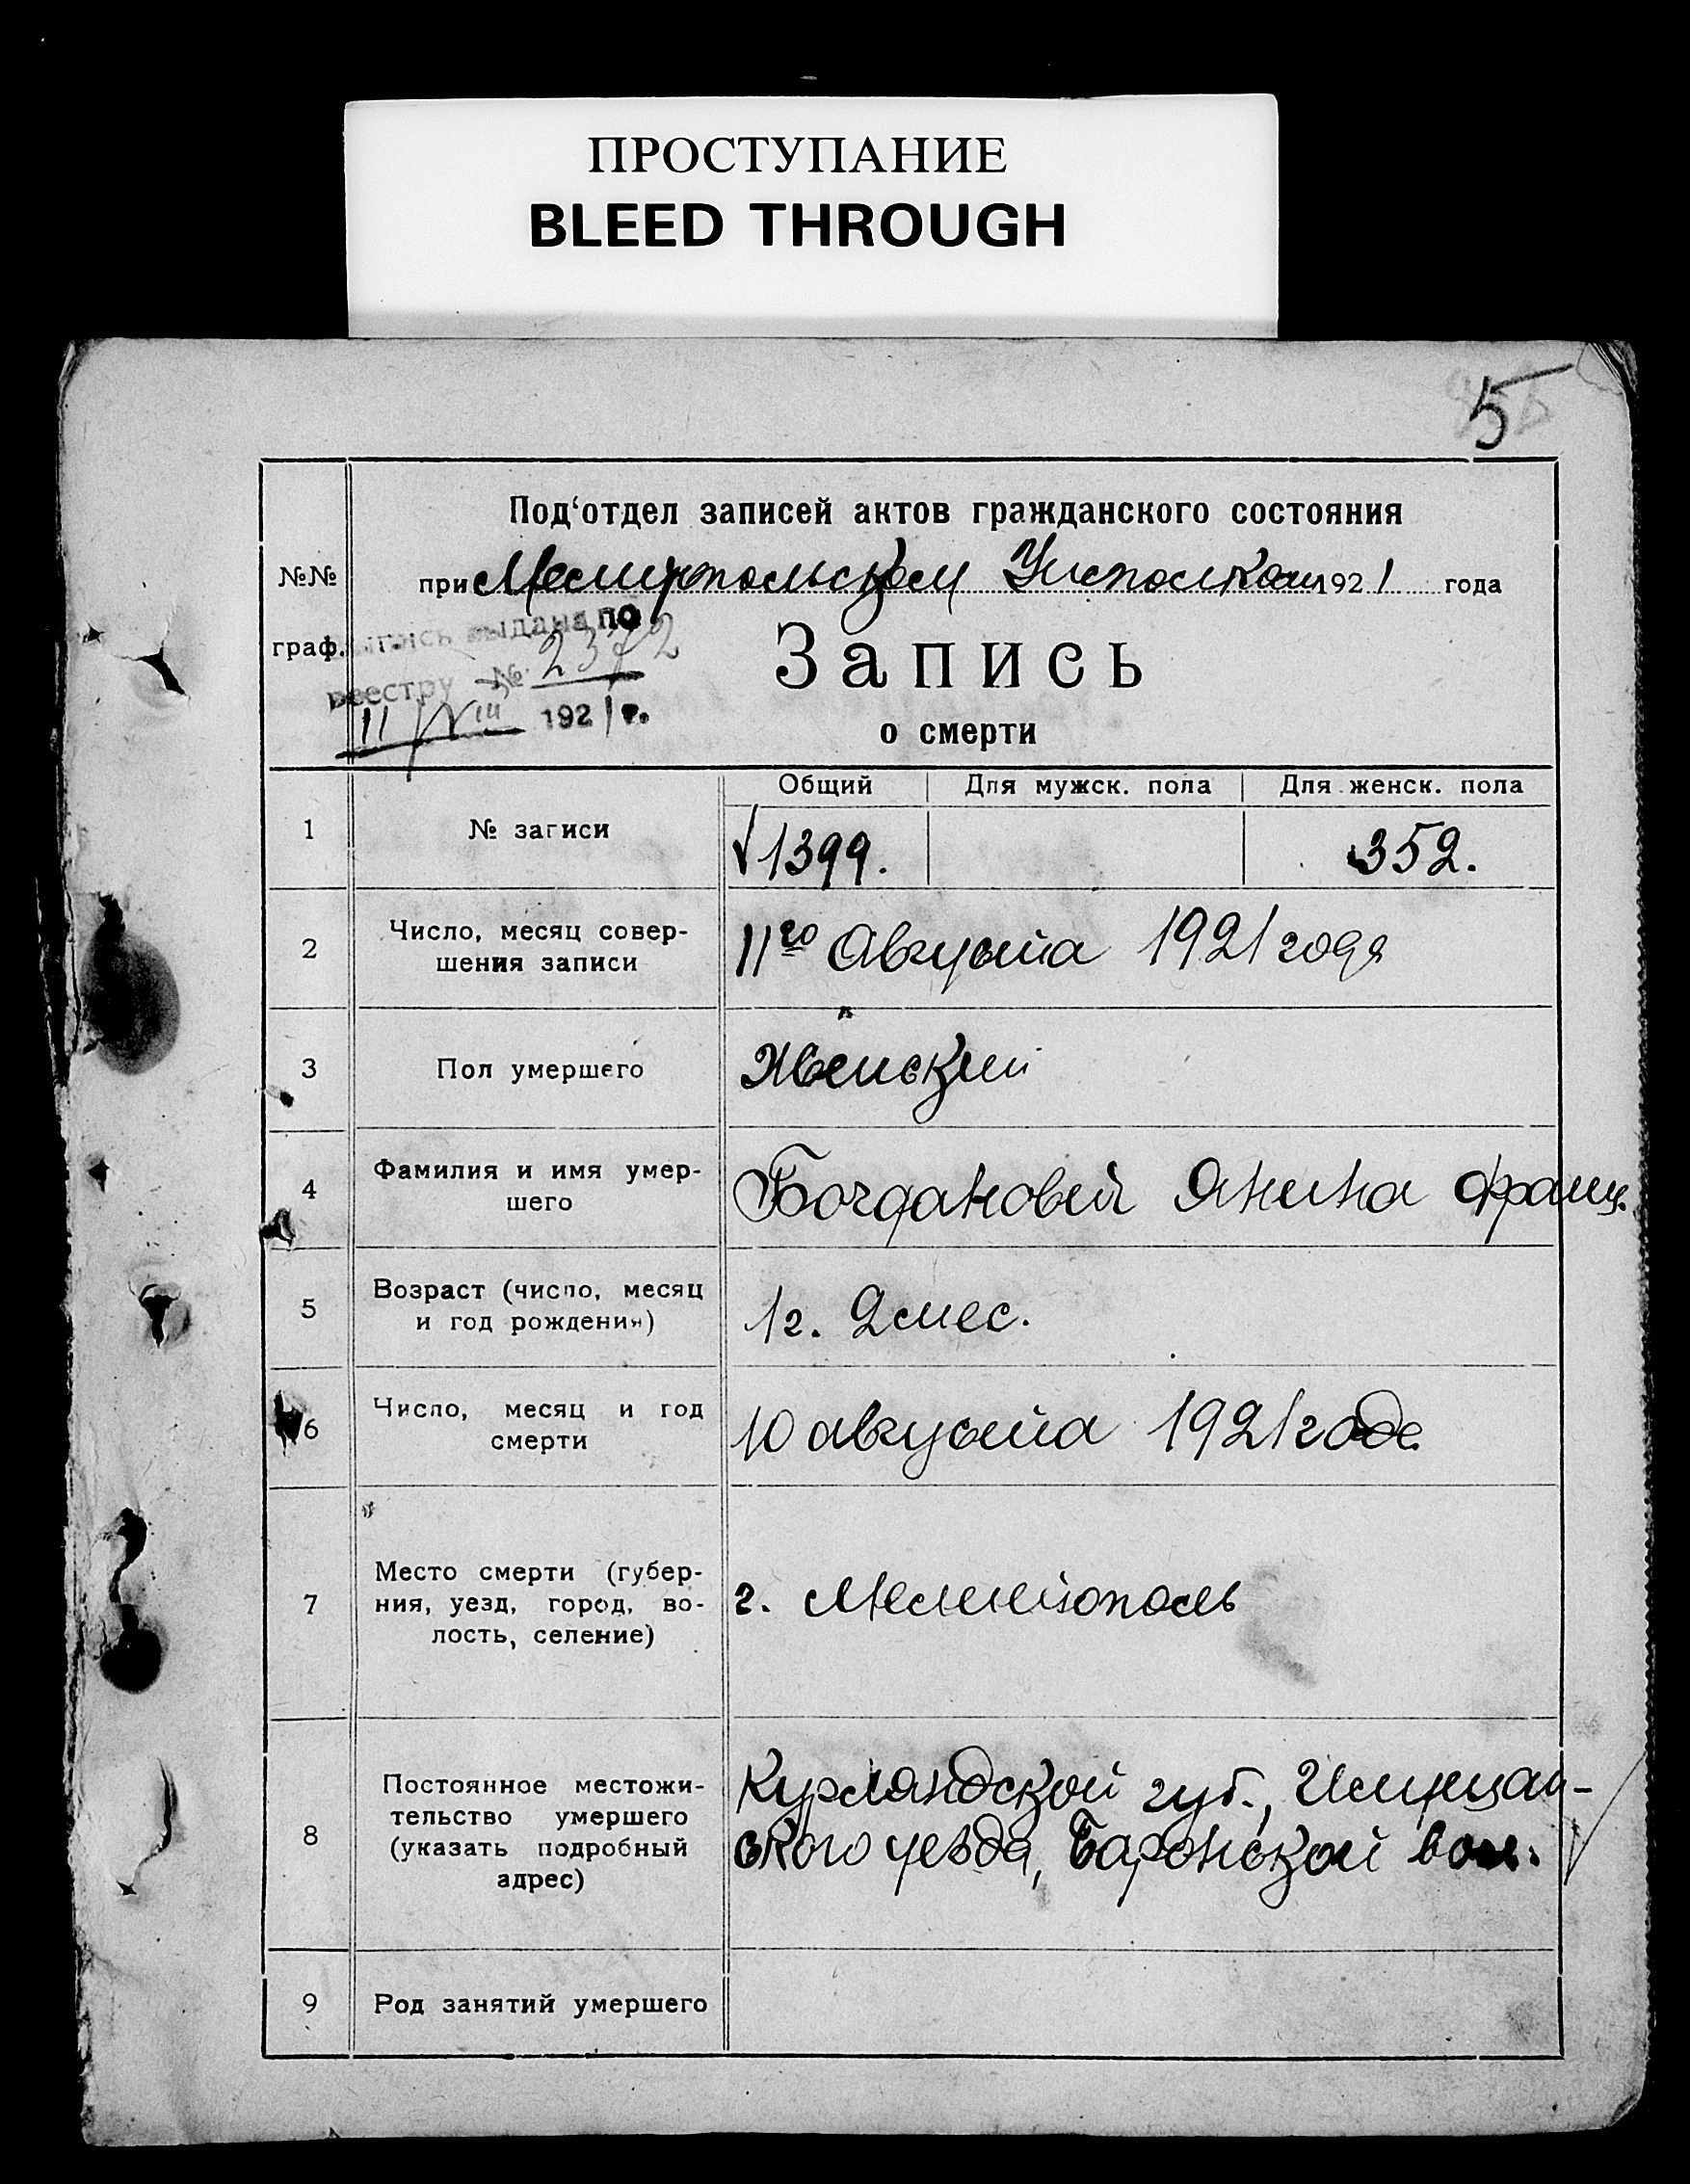 ПРОСТУПАНИЕ
BLEED THROUGH
5
Под‘отдел записей актов гражданского состояния
№№ граф.
при Мелитопольском Уисполком 1921 года
выдана по
реестру № 2372
11/VIII 1921 г.
Запись
о смерти
Общий Для мужск. пола Для женск. пола
1 № записи 1399. 352.
2 Число, месяц совер-
шения записи 11го Августа 1921 года
3 Пол умершего Женский
4 Фамилия и имя умер-
шего Богдановей Янина Франц.
5 Возраст (число, месяц
и год рождения) 1 г. 2 мес.
6 Число, месяц и год
смерти 10 августа 1921 года
7 Место смерти (губер-
ния, уезд, город, во-
лость, селение) г. Мелитополь
8 Постоянное местожи-
тельство умершего
(указать подробный
адрес) Курляндской губ.,
ского уезда, Баронской вол.
9 Род занятий умершего